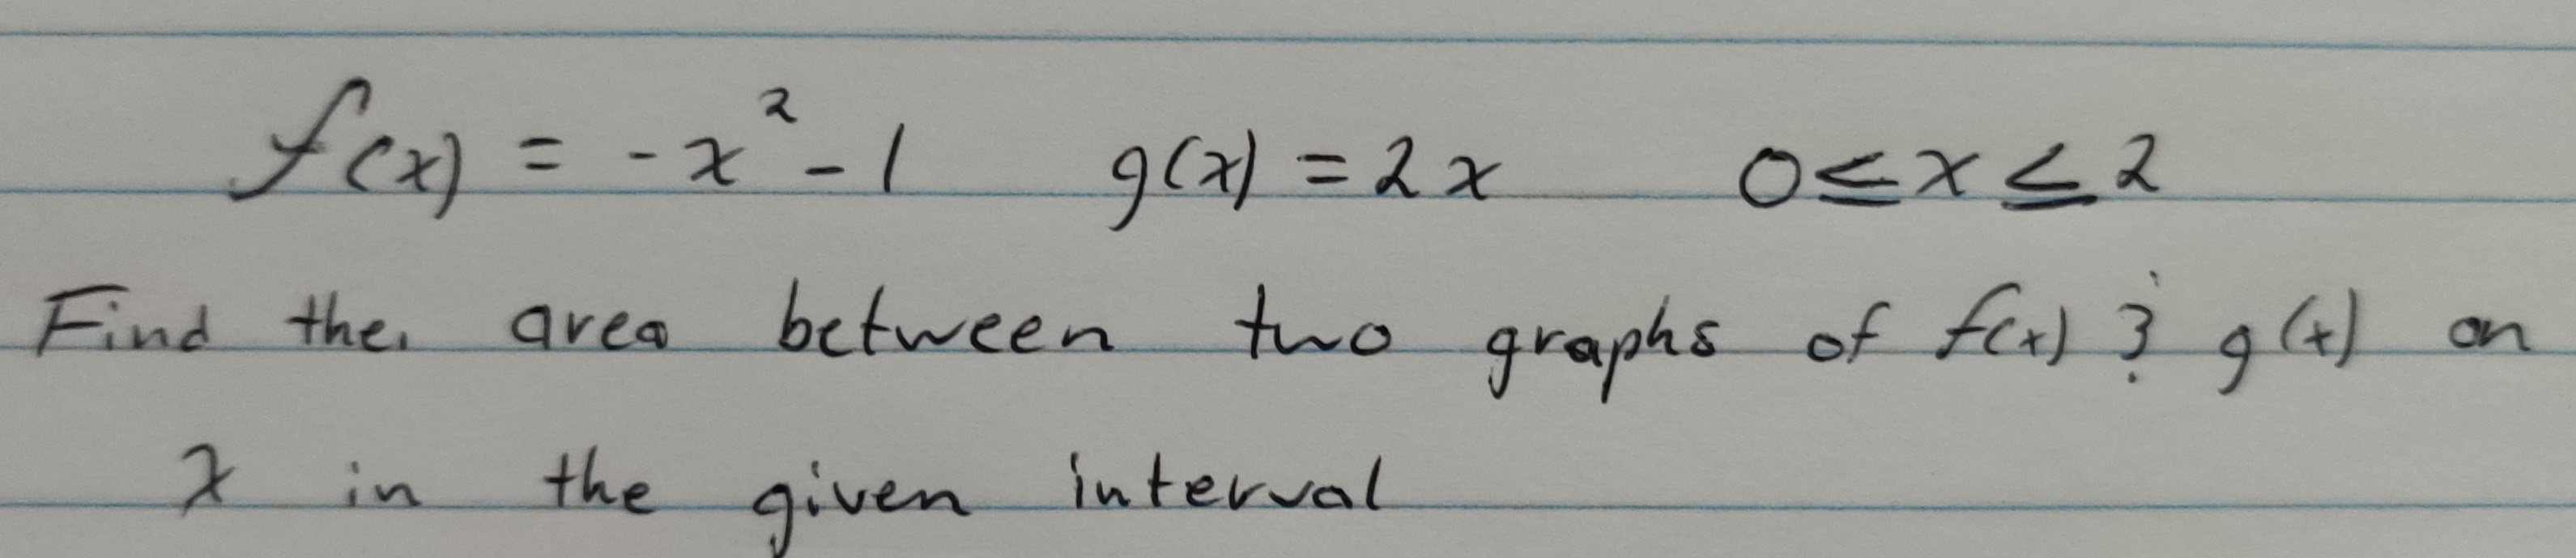 f(x) = -x² - 1 g(x) = 2x 0 ≤ x ≤ 2
Find the area between two graphs of f(x) & g(x) on
x in the given interval